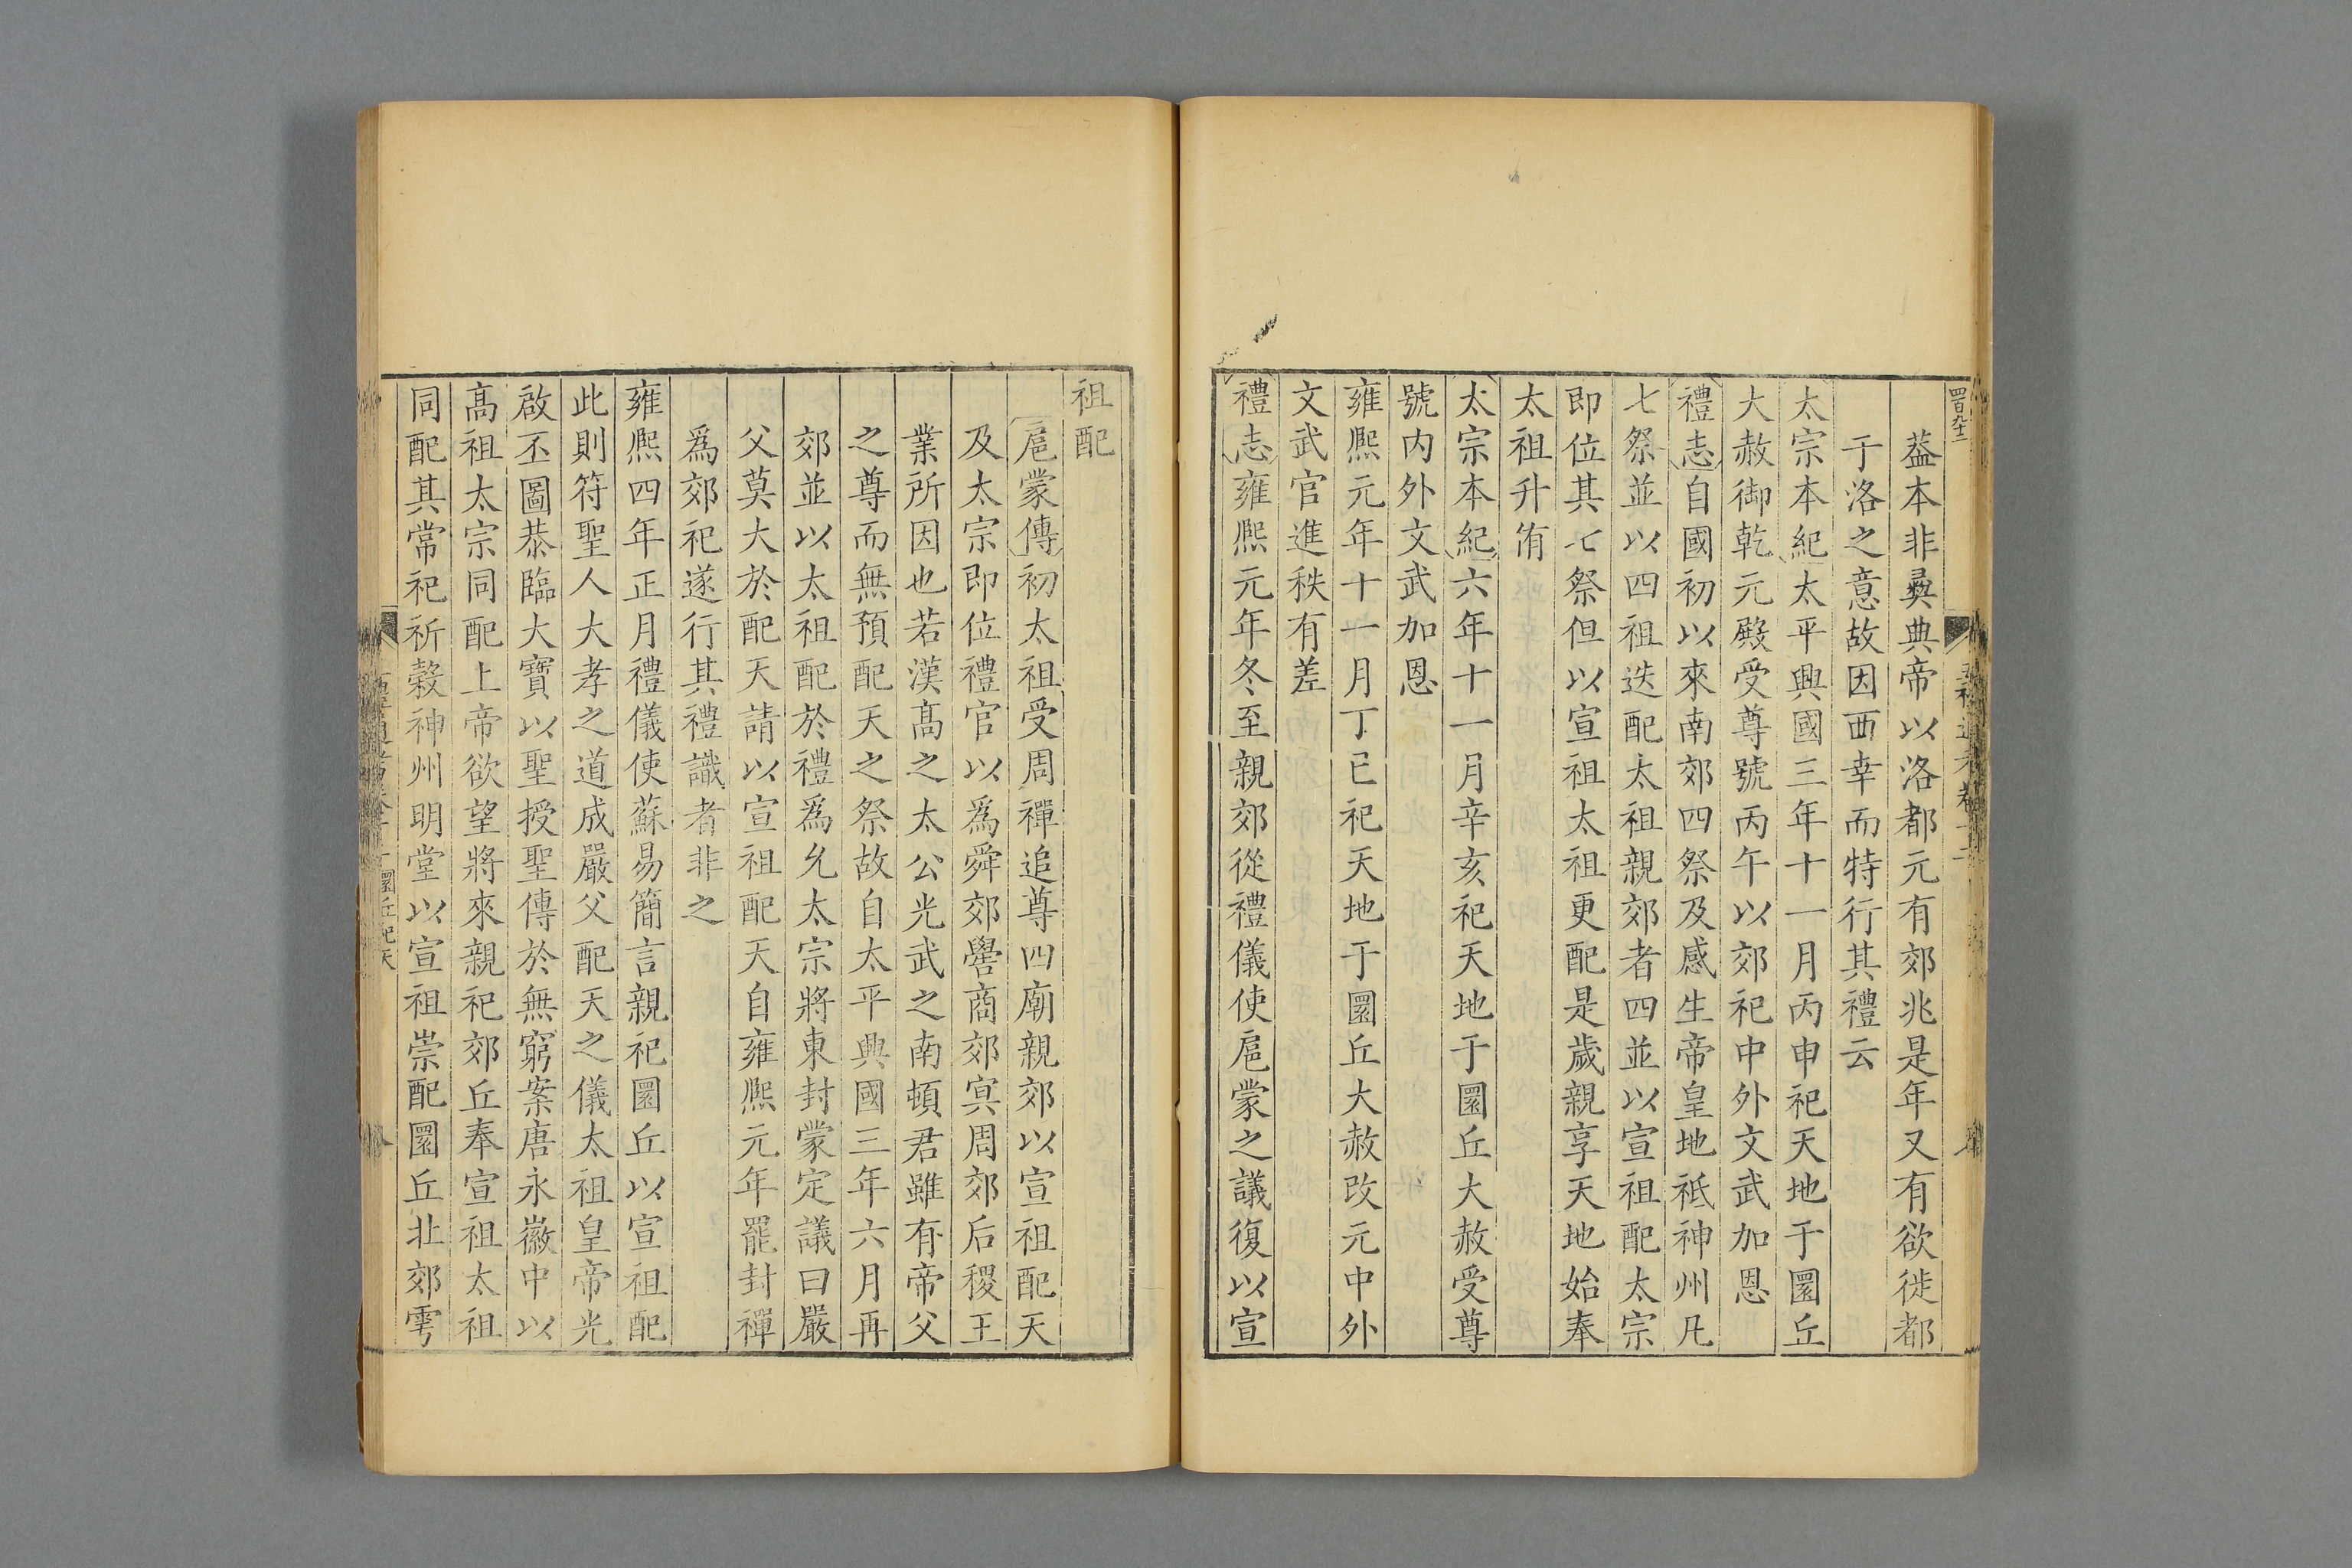 四百九十二
蓋本非彛典帝以洛都元有郊兆是年又有欲徙都
于洛之意故因西幸而特行其禮云
太宗本紀太平興國三年十一月丙申祀天地于圜丘
大赦御乾元殿受尊號丙午以郊祀中外文武加恩
禮志自國初以來南郊四祭及感生帝皇地祗神州凡
七祭並以四祖迭配太祖親郊者四並以宣祖配太宗
即位其七祭但以宣祖太祖更配是歲親享天地始奉
太祖升侑
太宗本紀六年十一月辛亥祀天地于圜丘大赦受尊
號内外文武加恩
雍熙元年十一月丁巳祀天地于圜丘大赦改元中外
文武官進秩有差
禮志雍熙元年冬至親郊從禮儀使扈蒙之議復以宣
祖配
扈蒙傳初太祖受周禪追尊四廟親郊以宣祖配天
及太宗即位禮官以爲舜郊嚳商郊㝠周郊后稷王
業所因也若漢髙之太公光武之南頓君雖有帝父
之尊而無預配天之祭故自太平興國三年六月再
郊並以太祖配於禮爲允太宗將東封蒙定議曰嚴
父莫大於配天請以宣祖配天自雍熙元年罷封禪
爲郊祀遂行其禮識者非之
雍熙四年正月禮儀使蘇易簡言親祀圜丘以宣祖配
此則符聖人大孝之道成嚴父配天之儀太祖皇帝光
啟丕圖恭臨大寶以聖授聖傳於無窮案唐永徽中以
髙祖太宗同配上帝欲望將來親祀郊丘奉宣祖太祖
同配其常祀祈榖神州明堂以宣祖崇配圜丘北郊雩
圜丘祀天